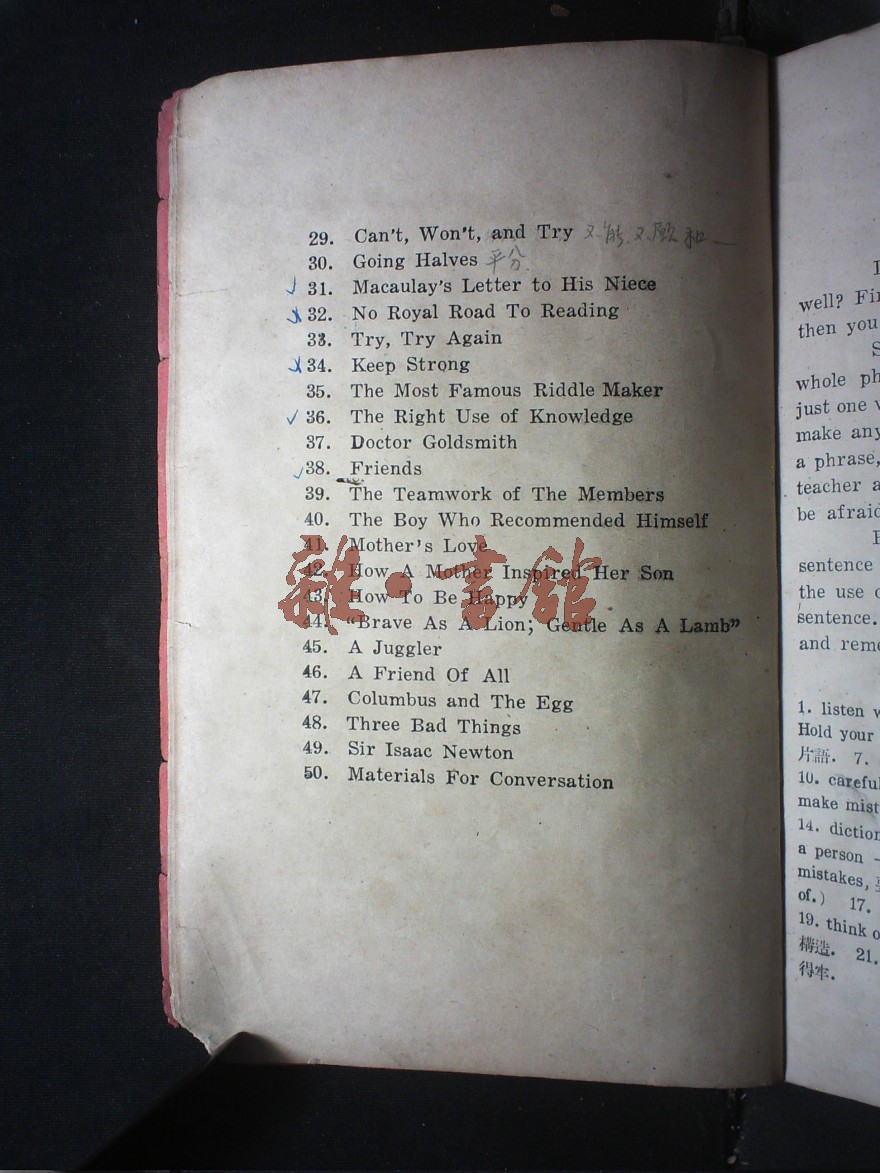 29. Can't, Won't, and Try 不能 不願 和
30. Going Halves 平分
31. Macaulay's Letter to His Niece
32. No Royal Road To Reading
33. Try, Try Again
34. Keep Strong
35. The Most Famous Riddle Maker
36. The Right Use of Knowledge
37. Doctor Goldsmith
38. Friends
39. The Teamwork of The Members
40. The Boy Who Recommended Himself
41. Mother's Love
42. How A Mother Inspired Her Son
43. How To Be Happy
44. “Brave As A Lion; Gentle As A Lamb”
45. A Juggler
46. A Friend Of All
47. Columbus and The Egg
48. Three Bad Things
49. Sir Isaac Newton
50. Materials For Conversation
雜·書館
well? Fi
then you
whole ph
just one
make any
a phrase,
teacher a
be afraid
sentence
the use
sentence.
and reme
1. listen
Hold your
片語. 7.
10. careful
make mist
14. diction
a person
mistakes,
of.) 17.
19. think o
構造. 21.
得牢.